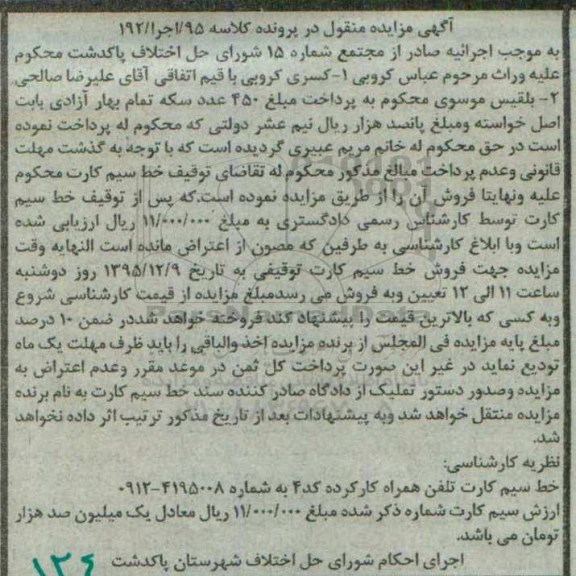 آگهی مزایده منقول در پرونده کلاسه ۹۵/اجرا/۱۹۲
به موجب اجرائیه صادر از مجتمع شماره ۱۵ شورای حل اختلاف پاکدشت محکوم
علیه وراث مرحوم عباس کروبی ۱-کسری کروبی با قیم اتفاقی آقای علیرضا صالحی
۲- بلقیس موسوی محکوم به پرداخت مبلغ ۴۵۰ عدد سکه تمام بهار آزادی بابت
اصل خواسته ومبلغ پانصد هزار ریال نیم عشر دولتی که محکوم له پرداخت نموده
است در حق محکوم له خانم مریم عبیری گردیده است که با توجه به گذشت مهلت
قانونی وعدم پرداخت مبالغ مذکور محکوم له تقاضای توقیف خط سیم کارت محکوم
علیه ونهایتا فروش آن را از طریق مزایده نموده است.که پس از توقیف خط سیم
کارت توسط کارشناس رسمی دادگستری به مبلغ ۱۱/۰۰۰/۰۰۰ ریال ارزیابی شده
است وبا ابلاغ کارشناسی به طرفین که مصون از اعتراض مانده است النهایه وقت
مزایده جهت فروش خط سیم کارت توقیفی به تاریخ ۱۳۹۵/۱۲/۹ روز دوشنبه
ساعت ۱۱ الی ۱۲ تعیین وبه فروش می رسدمبلغ مزایده از قیمت کارشناسی شروع
وبه کسی که بالاترین قیمت را پیشنهاد کند فروخته خواهد شددر ضمن ۱۰ درصد
مبلغ پایه مزایده فی المجلس از برنده مزایده اخذ والباقی را باید ظرف مهلت یک ماه
تودیع نماید در غیر این صورت پرداخت کل ثمن در موعد مقرر وعدم اعتراض به
مزایده وصدور دستور تملیک از دادگاه صادر کننده سند خط سیم کارت به نام برنده
مزایده منتقل خواهد شد وبه پیشنهادات بعد از تاریخ مذکور ترتیب اثر داده نخواهد
شد.
نظریه کارشناسی:
خط سیم کارت تلفن همراه کارکرده کد۴ به شماره ۴۱۹۵۰۰۸-۰۹۱۲
ارزش سیم کارت شماره ذکر شده مبلغ ۱۱/۰۰۰/۰۰۰ ریال معادل یک میلیون صد هزار
تومان می باشد.
اجرای احکام شورای حل اختلاف شهرستان پاکدشت
۱۲۶